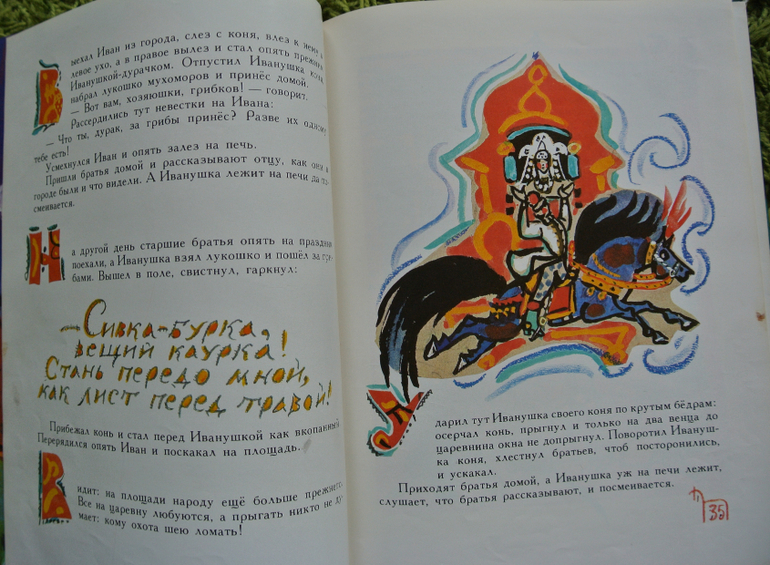 Выехал Иван из города, слез с коня, влез к нему в
левое ухо, а в правое вылез и стал опять прежним
Иванушкой-дурачком. Отпустил Иванушка коня,
набрал лукошко мухоморов и принёс домой.
— Вот вам, хозяюшки, грибков! — говорит.
Рассердились тут невестки на Ивана:
— Что ты, дурак, за грибы принёс? Разве их одному
тебе есть!
Усмехнулся Иван и опять залез на печь.
Пришли братья домой и рассказывают отцу, как они в
городе были и что видели. А Иванушка лежит на печи да по-
смеивается.
На другой день старшие братья опять на праздник
поехали, а Иванушка взял лукошко и пошёл за гри-
бами. Вышел в поле, свистнул, гаркнул:
—Сивка-бурка,
вещий каурка!
Стань передо мной,
как лист перед травой!
Прибежал конь и стал перед Иванушкой как вкопанный.
Перерядился опять Иван и поскакал на площадь.
Видит: на площади народу ещё больше прежнего.
Все на царевну любуются, а прыгать никто не ду-
мает: кому охота шею ломать!
Ударил тут Иванушка своего коня по крутым бёдрам:
осерчал конь, прыгнул и только на два венца до
царевнина окна не допрыгнул. Поворотил Ивануш-
ка коня, хлестнул братьев, чтоб посторонились,
и ускакал.
Приходят братья домой, а Иванушка уж на печи лежит,
слушает, что братья рассказывают, и посмеивается.
35